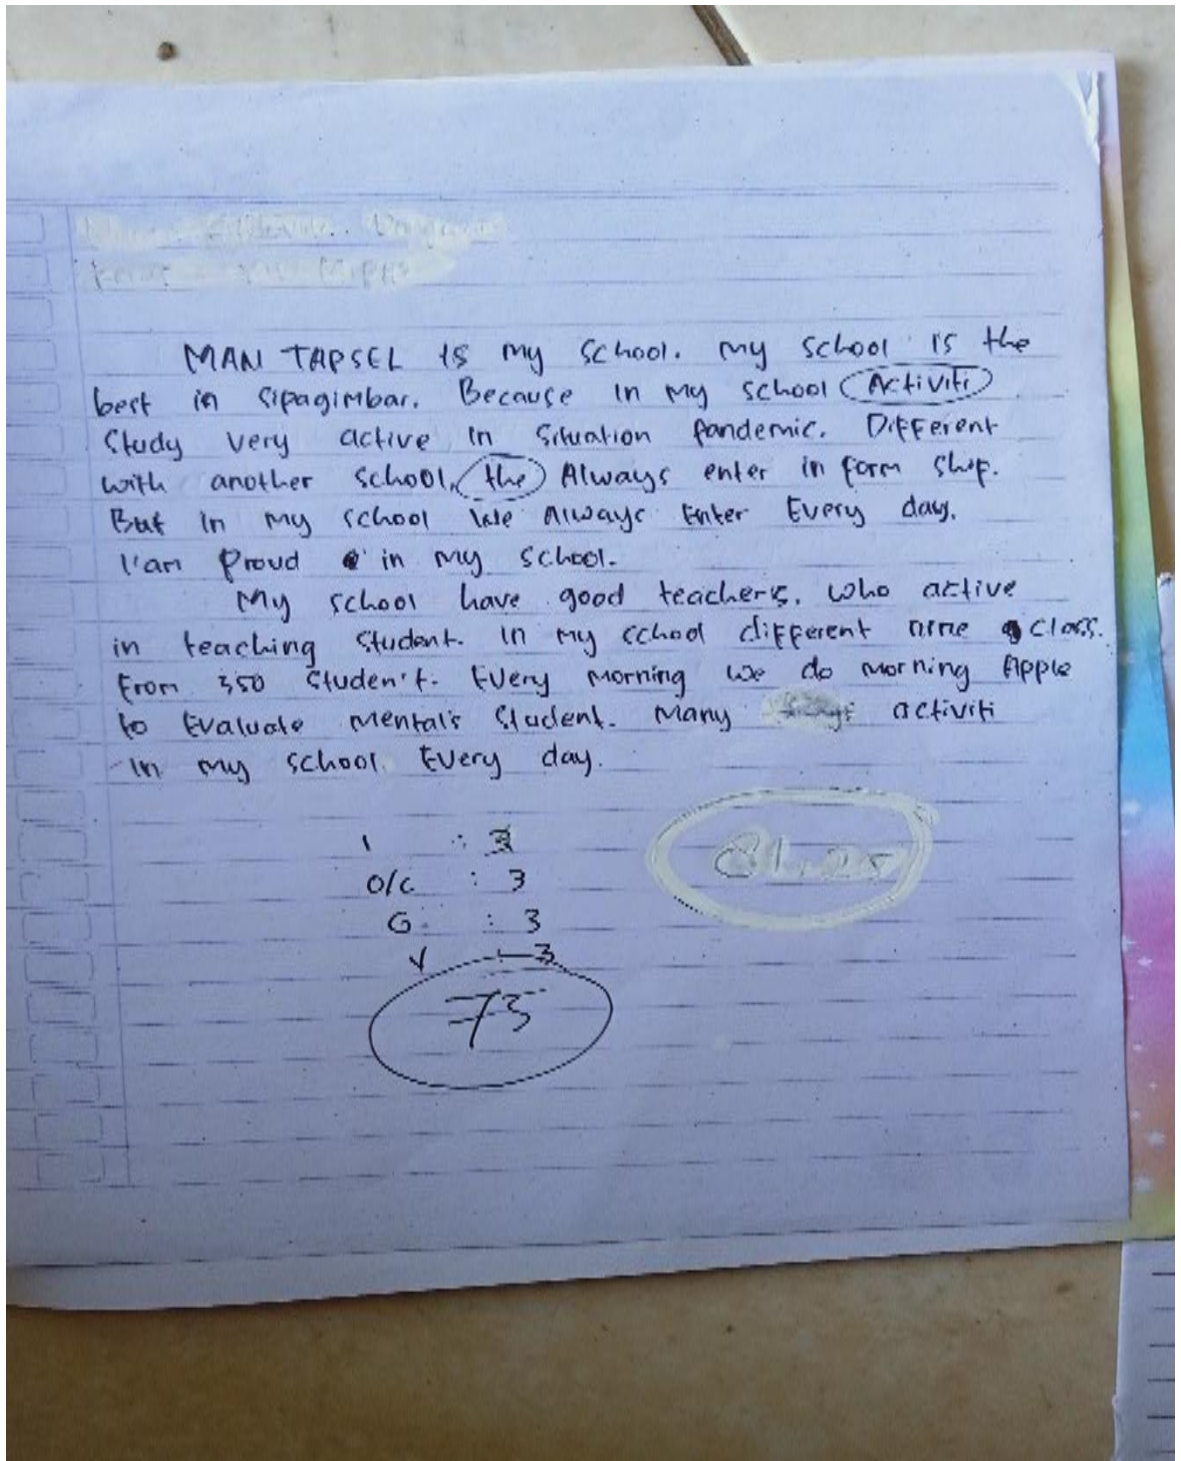 MAN TAPSEL is my school. my school is the
best in sipagimbar. Because in my school Activiti
Study very active in situation pandemic. Different
with another school, the Always enter in form shif.
But in my school We Always Enter Every day.
I'am Proud in my school.
My school have good teachers, who active
in teaching student. in my school different nine class.
From 350 studen't. Every morning we do morning Apple
to Evaluate mental's student. Many activiti
in my school Every day.
1 : 3
O/C : 3
G : 3
V : 3
75
81.25